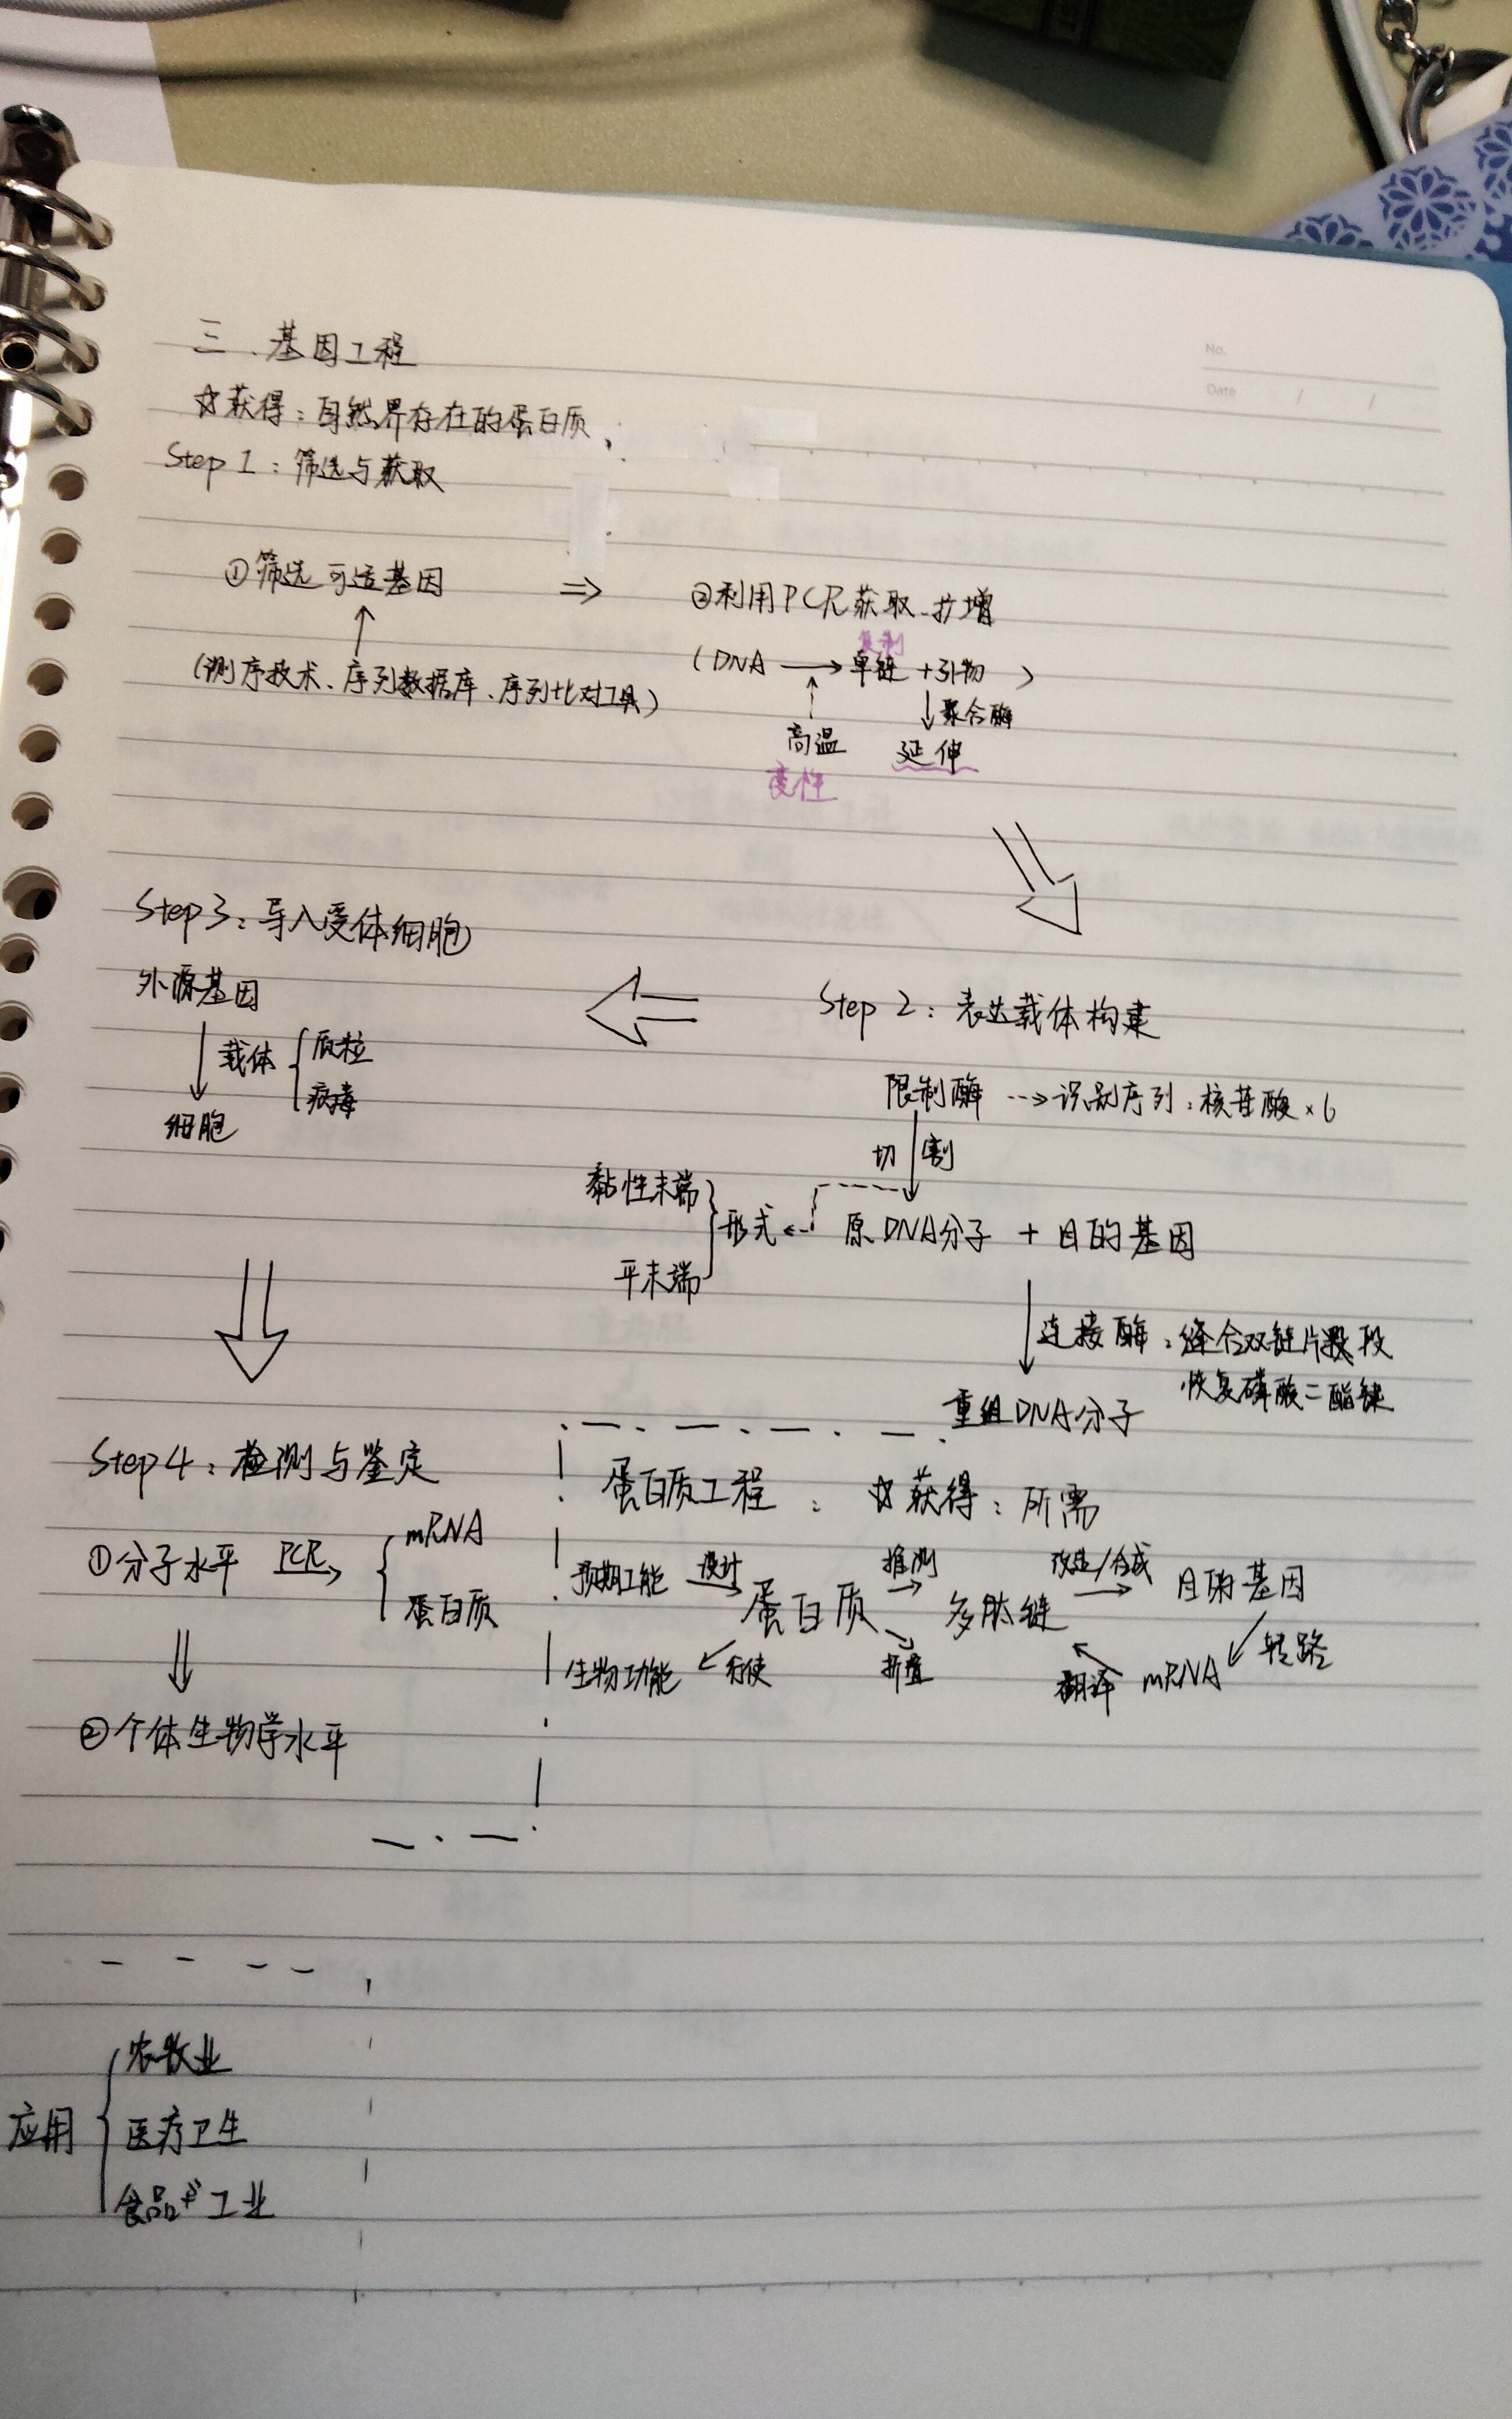 No.
Date / /
三.基因工程
☆获得：自然界存在的蛋白质.
Step 1：筛选与获取
①筛选可适基因 ⇒ ②利用PCR获取、扩增
(测序技术、序列数据库、序列比对工具)
复制
(DNA → 单链 + 引物 )
↓聚合酶
高温 延伸
变性
Step 3：导入受体细胞
外源基因
↓载体 { 质粒 病毒
细胞
Step 2：表达载体构建
限制酶 --→ 识别序列：核苷酸×6
切割
黏性末端
平末端 } 形式 ← 原DNA分子 + 目的基因
↓连接酶：缝合双链片段
恢复磷酸二酯键
重组DNA分子
Step 4：检测与鉴定
①分子水平 PCR→ { mRNA 蛋白质
⇓
②个体生物学水平
蛋白质工程：☆获得：所需
预期功能 设计→ 蛋白质 推测→ 多肽链 改造/合成→ 目的基因
生物功能 ←行使 折叠 翻译 mRNA ↙转路
应用 { 农牧业
医疗卫生
食品 工业